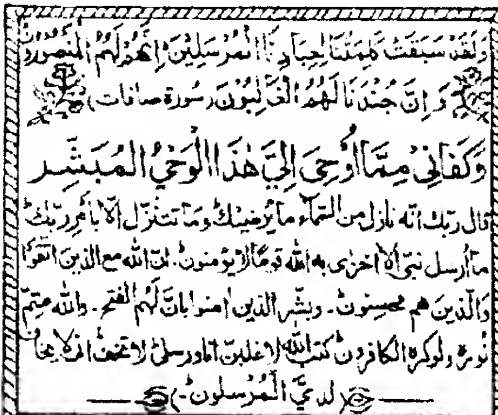 وَلَقَدْ سَبَقَتْ كَلِمَتُنَا لِعِبَادِنَا الْمُرْسَلِيْنَ اِنَّهُمْ لَهُمُ الْمَنْصُوْرُوْنَ
وَ اِنَّ جُنْدَنَا لَهُمُ الْغٰلِبُوْنَ (سُورة صافات)
وَكَفَانِيْ مِمَّا اُوْحِيَ اِلَيَّ هٰذَا الْوَحْيُ المُبَشِّر
قال ربّك انّه نازل من السّماء ما يرضيك وما تتنزّل الّا بامر ربّك
ما ارسل نبيّ الّا اخزى به الله قومًا لا يؤمنون۔ انّ الله مع الذين اتّقوا
والّذين هم محسنون۔ وبشّر الّذين امنوا بانّ لهم الفتح۔ والله متمّ
نوره ولو كره الكافرون كتب الله لاغلبنّ انا ورسلي لا تخف انّي لا يخاف
لديّ الْمُرْسلون۔